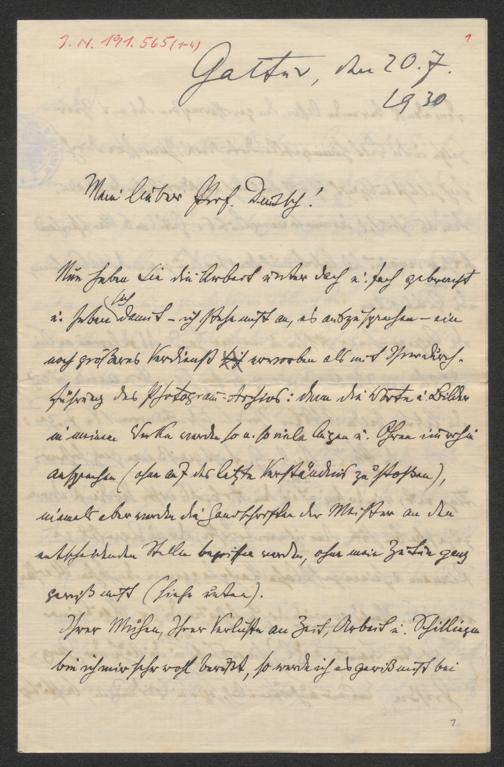 I. N. 191.565 (1-4)
1
Galtür, den 20.7.
1930
Mein lieber Prof. Deutsch!
Nun haben Sie die Arbeit unter Dach u. Fach gebracht
u. haben sich damit – ich stehe nicht an, es auszusprechen – ein
noch größeres Verdienst erworben als mit Ihrer Durch-
führung des Photogramm-Archivs: denn die Worte u. Bilder
in meinen Werken werden so u. so viele Augen u. Ohren immerhin
ansprechen (ohne auf das letzte Verständnis zu stoßen),
niemals aber werden die Handschriften der Meister an den
entscheidenden Stellen begriffen werden, ohne mein Zutun ganz
gewiß nicht (siehe unten).
Ihrer Mühen, Ihrer Verluste an Zeit, Arbeit u. Schillingen
bin ich mir sehr wohl bewußt, so werde ich es gewiß nicht bei